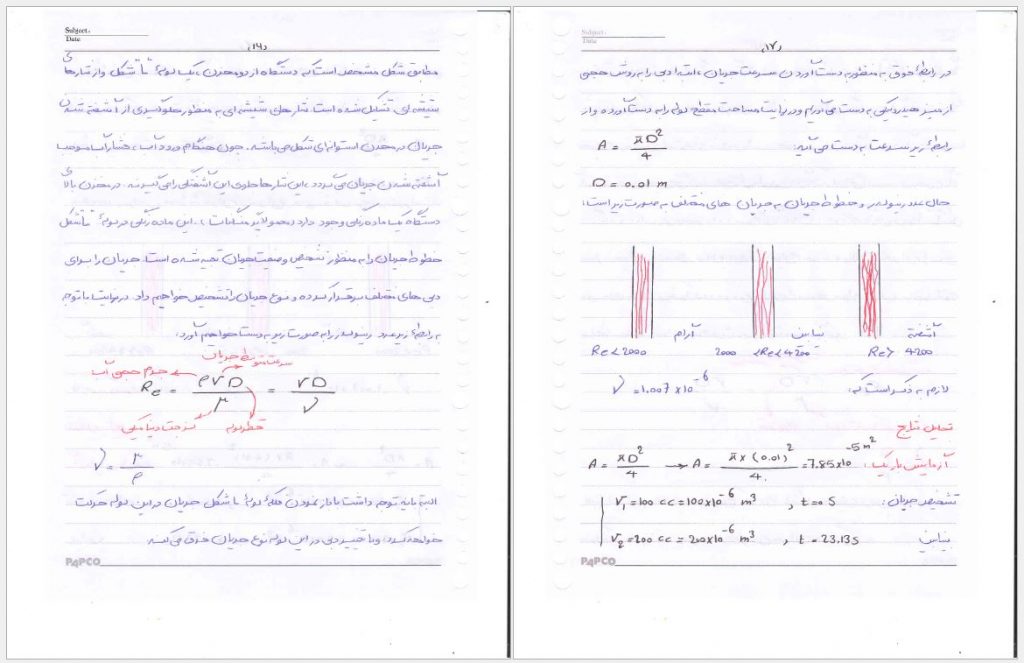 Subject:
Date
(۱۶)
مطابق شکل مشخص است که دستگاه از دو مخزن، یک لوله U شکل و از تیله‌های
شیشه ای تشکیل شده است. تیله های شیشه ای به منظور جلوگیری از آشفته شدن
جریان در مخزن استوانه ای شکل می باشد. چون هنگام ورود آب، فشار آب موجب
آشفته شدن جریان می گردد، این تیله ها جلوی این آشفتگی را می گیرند. در مخزن بالای
دستگاه یک ماده رنگی وجود دارد (معمولا پرمنگنات)، این ماده رنگی در لوله شکل
خطوط جریان را به منظور تشخیص وضعیت جریان تعبیه شده است. جریان را برای
دبی های مختلف برقرار کرده و نوع جریان را تشخیص خواهیم داد. در نهایت با توجه
به رابطه زیر عدد رینولدز را به صورت زیر به دست خواهیم آورد:
سرعت متوسط جریان
جرم حجمی آب
Re = ρVD / μ = VD / ν
لزجت دینامیکی
قطر لوله
ν = μ / ρ
البته باید توجه داشت با باز نمودن لوله شکل جریان در این لوله حرکت
خواهد کرد، و با تغییر دبی در این لوله نوع جریان فرق می کند.
PAPCO
Subject:
Date
(۱۷)
در رابطه فوق به منظور به دست آوردن سرعت جریان، ابتدا دبی را به روش حجمی
از میز هیدرولیکی به دست می آوریم و در نهایت مساحت مقطع لوله را به دست آورده و از
رابطه زیر سرعت به دست می آید: A = πD² / 4
D = 0.01 m
حال عدد رینولدز و خطوط جریان به جریان های مختلف به صورت زیر است:
آشفته بینابین آرام
Re < 2000 2000 < Re < 4200 Re > 4200
لازم به ذکر است که: ν = 1.007 × 10⁻⁶
تحلیل نتایج
آزمایش باریک: A = πD² / 4 → A = π × (0.01)² / 4 = 7.85×10⁻⁵ m²
تشخیص جریان: V₁ = 100 cc = 100×10⁻⁶ m³ , t = 0 S
بینابین V₂ = 200 cc = 200×10⁻⁶ m³ , t = 23.13 S
PAPCO